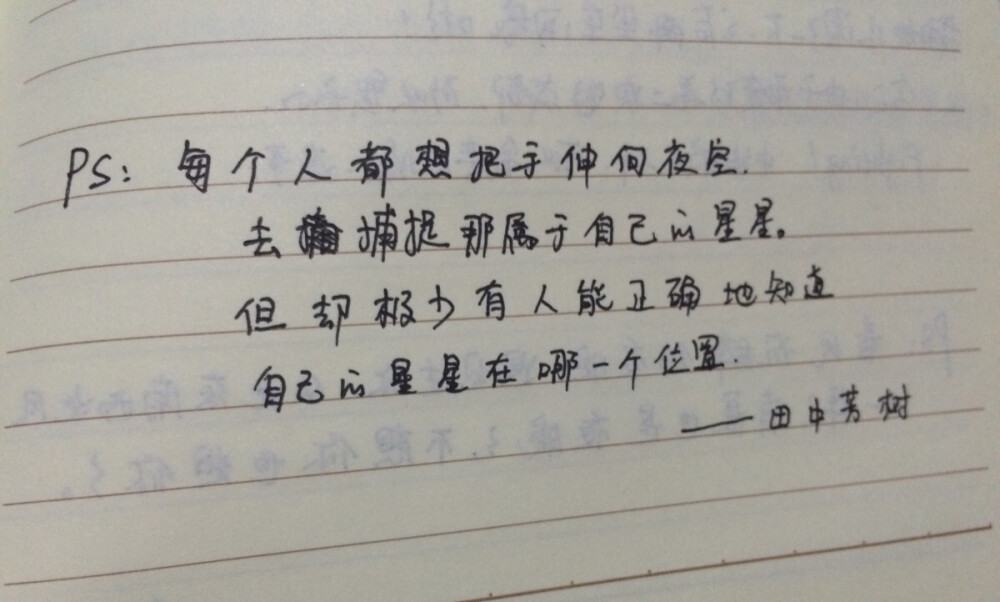 PS: 每个人都想把手伸向夜空.
去捕捉那属于自己的星星。
但却极少有人能正确地知道
自己的星星在哪一个位置.
——田中芳树